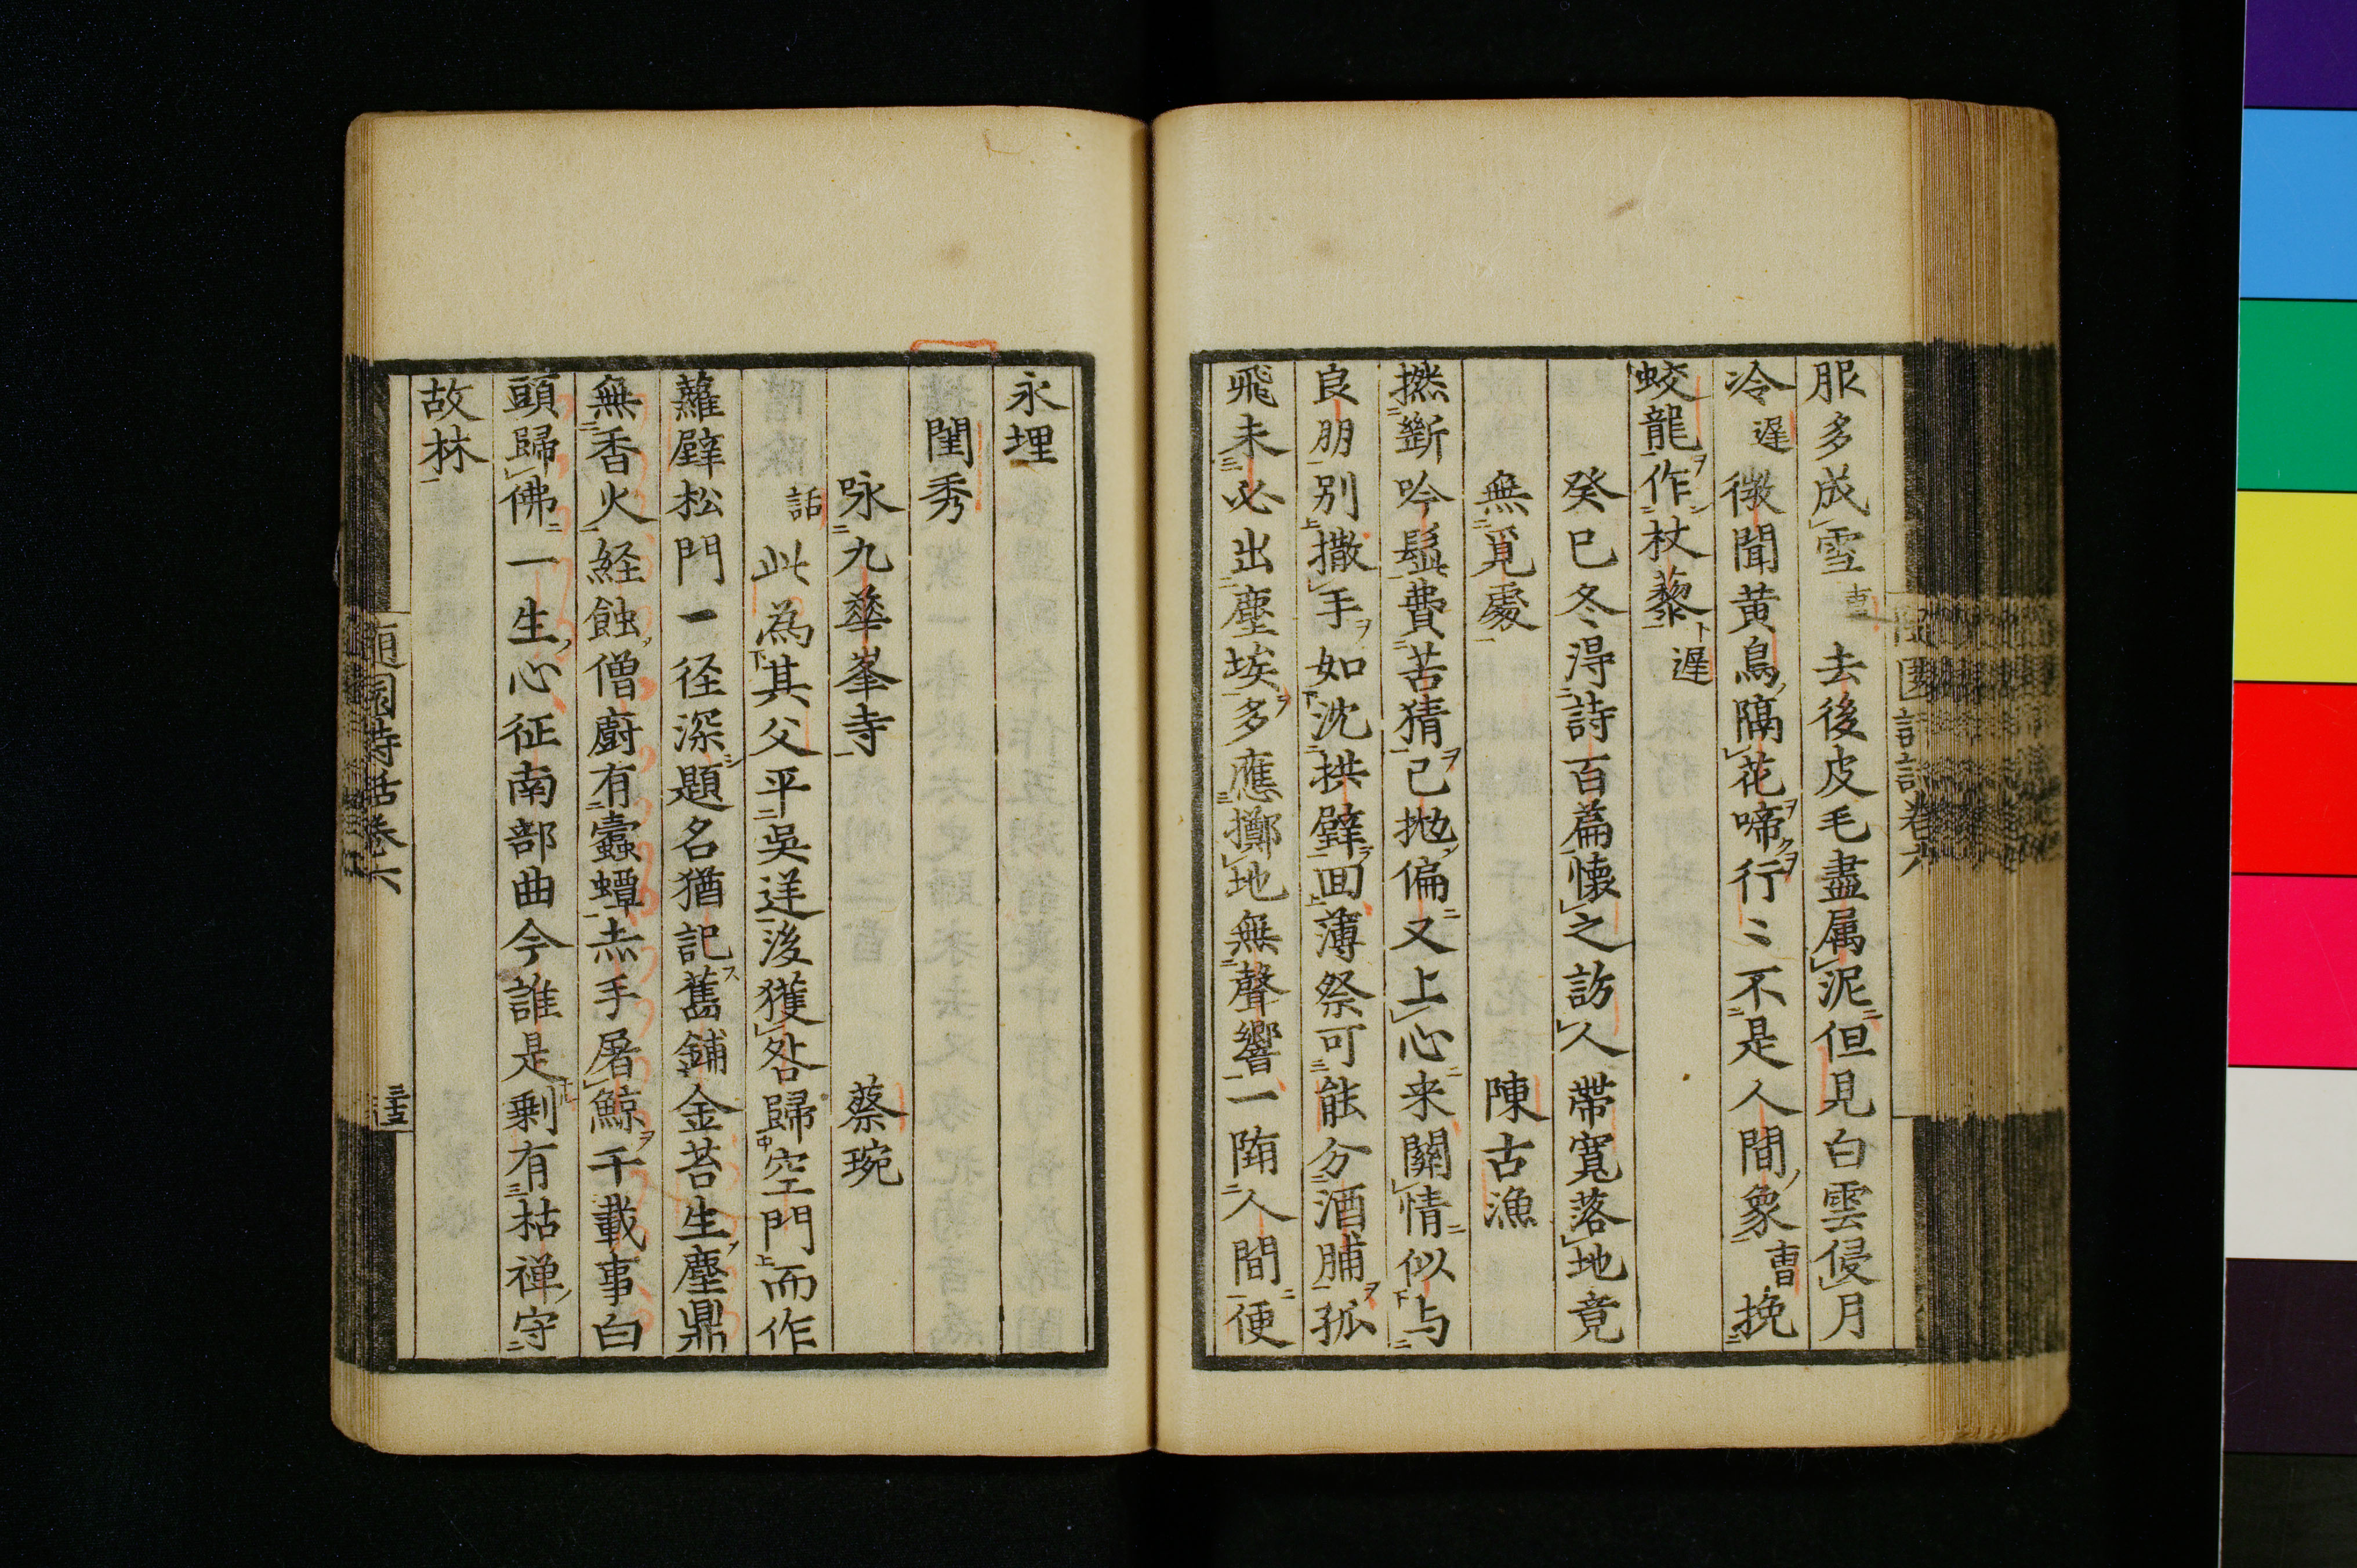 服多成雪 去後皮毛盡属泥但見白雲侵月
冷 遅 微聞黃鳥隔花啼行〻不是人間象 曹 挽
蛟龍作杖藜 遅
癸巳冬得詩百篇懐之訪人帶寬落地竟
無覓處 陳古漁
撚斷吟髭費苦猜已抛偏又上心来關情似与
良朋別撒手如沈拱璧回薄祭可能分酒脯孤
飛未必出塵埃多應擲地無聲響一堕人間便
永埋
閨秀
咏九華峯寺 蔡琬
話 此為其父平吳逆後獲咎歸空門而作
蘿壁松門一径深題名猶記舊鋪金苔生塵鼎
無香火経蝕僧廚有蠹蟫赤手屠鯨千載事白
頭歸佛一生心征南部曲今誰是剰有枯禅守
故林
隨園詩話卷六